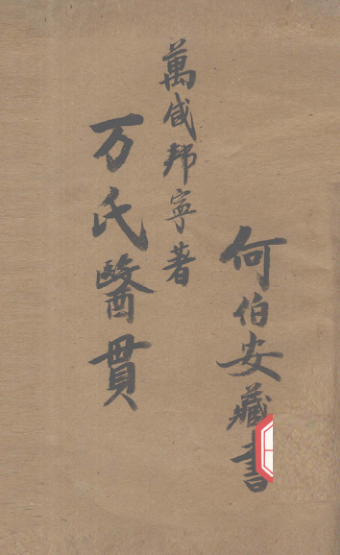 何伯安藏書
萬咸邦寧著
万氏醫贯